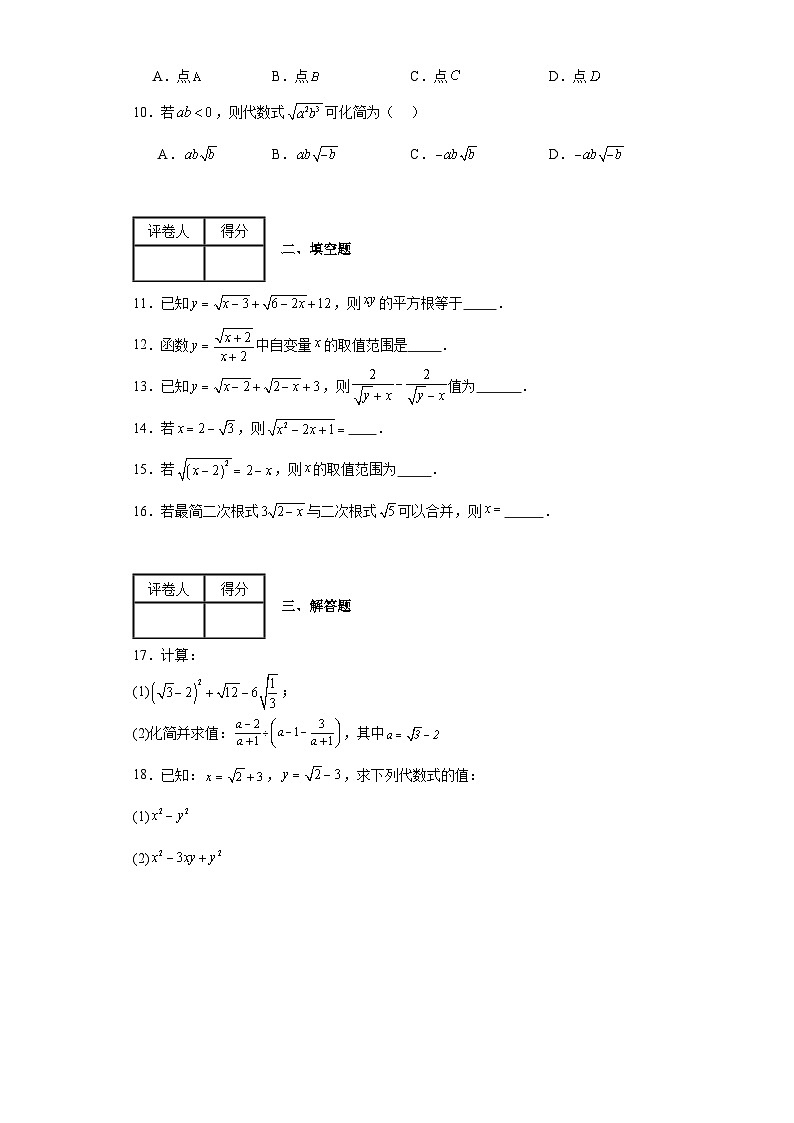 A．点A B．点B C．点C D．点D
10．若ab<0，则代数式√(a²b³)可化简为（ ）
A．ab√b B．ab√(−b) C．−ab√b D．−ab√(−b)
评卷人 得分
二、填空题
11．已知y=√(x−3)+√(6−2x)+12，则xy的平方根等于_____．
12．函数y=√(x+2)/(x+2)中自变量x的取值范围是_____．
13．已知y=√(x−2)+√(2−x)+3，则2/(√y+x)−2/(√y−x)值为______．
14．若x=2−√3，则√(x²−2x+1)=____．
15．若√((x−2)²)=2−x，则x的取值范围为_____．
16．若最简二次根式3√(2−x)与二次根式√5可以合并，则x=______．
评卷人 得分
三、解答题
17．计算：
(1)(√3−2)²+√12−6√(1/3)；
(2)化简并求值：(a−2)/(a+1)÷(a−1−3/(a+1))，其中a=√3−2
18．已知：x=√2+3，y=√2−3，求下列代数式的值：
(1)x²−y²
(2)x²−3xy+y²